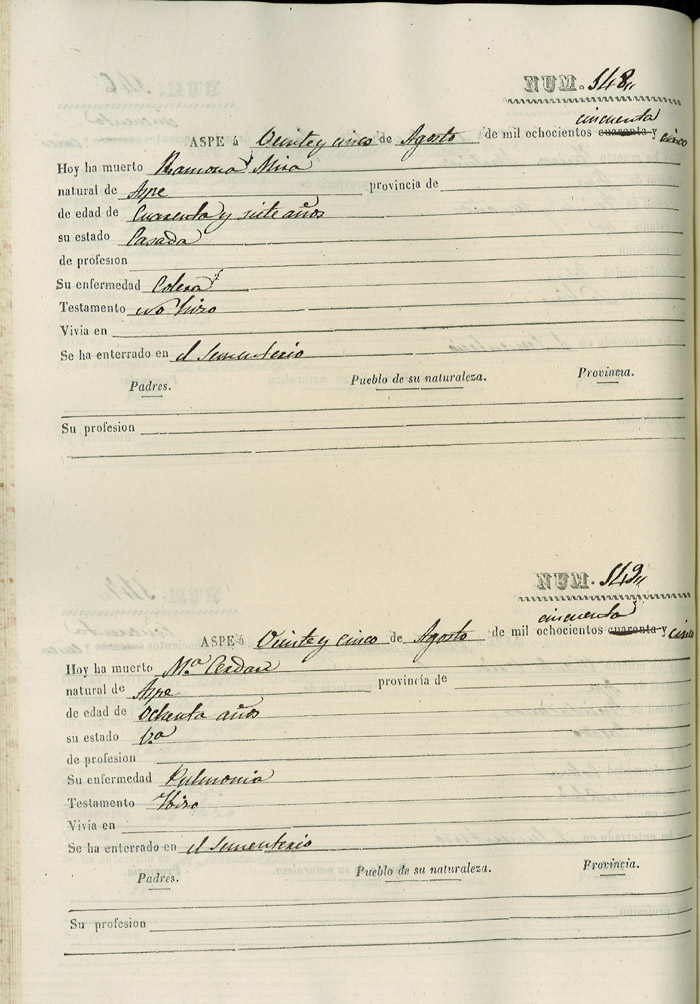 NUM. 548
cincuenta
ASPE á Veinte y cinco de Agosto de mil ochocientos cuarenta y cinco
Hoy ha muerto Ramona Mira
natural de Aspe provincia de
de edad de Cuarenta y siete años
su estado Casada
de profesion
Su enfermedad Colera
Testamento no hizo
Vivia en
Se ha enterrado en el Sementerio
Padres. Pueblo de su naturaleza. Provincia.
Su profesion
NUM. 549
cincuenta
ASPE á Veinte y cinco de Agosto de mil ochocientos cuarenta y cinco
Hoy ha muerto M.ª Cerdan
natural de Aspe provincia de
de edad de Ochenta años
su estado V.ª
de profesion
Su enfermedad Pulmonia
Testamento Hizo
Vivia en
Se ha enterrado en el Sementerio
Padres. Pueblo de su naturaleza. Provincia.
Su profesion